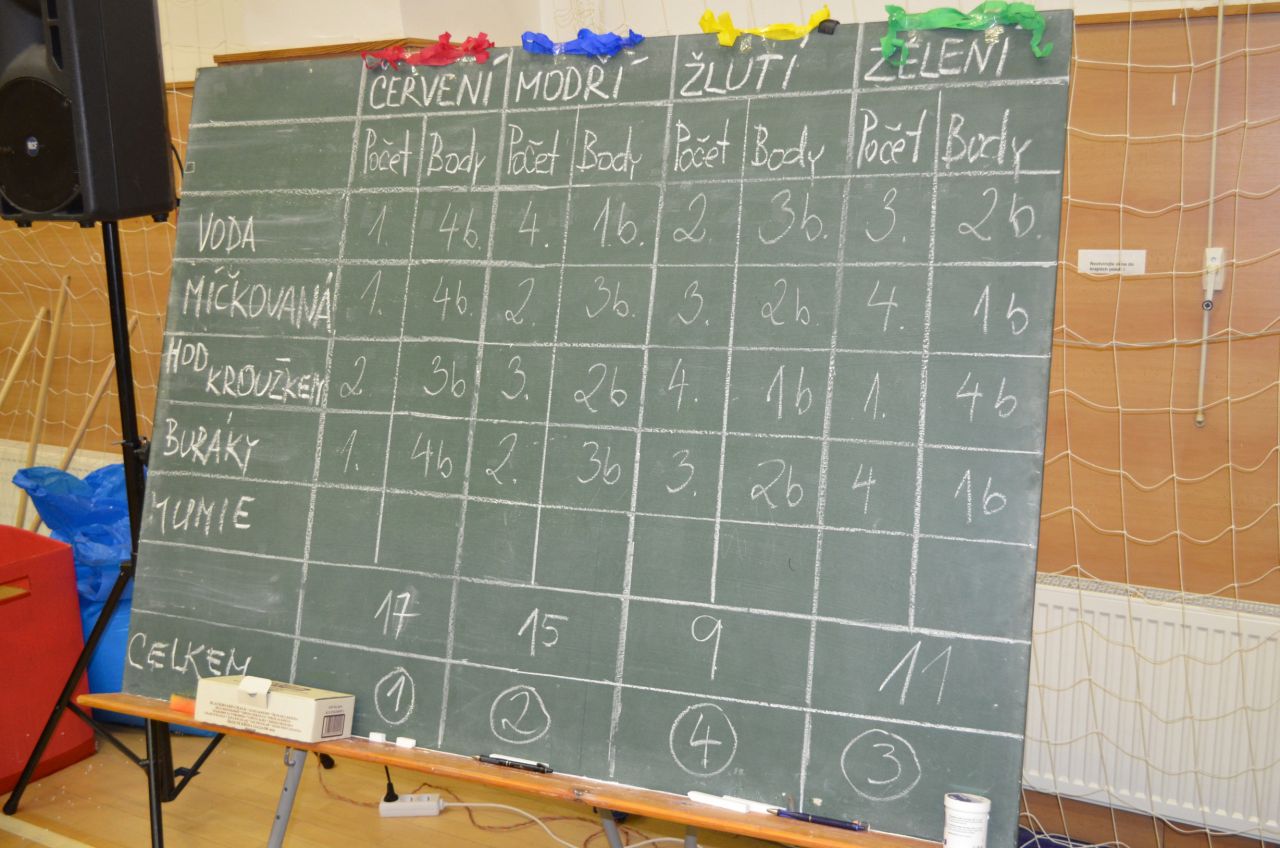 ČERVENÍ MODŘÍ ŽLUTÍ ZELENÍ
Počet Body Počet Body Počet Body Počet Body
VODA 1. 4b. 4. 1b. 2. 3b. 3. 2b.
MÍČKOVANÁ 1. 4b 2. 3b. 3. 2b 4. 1b
HOD KROUŽKEM 2. 3b 3. 2b 4. 1b 1. 4b
BURÁKY 1. 4b 2. 3b 3. 2b 4 1b
MUMIE
17 15 9 11
CELKEM 1 2 4 3
RCF